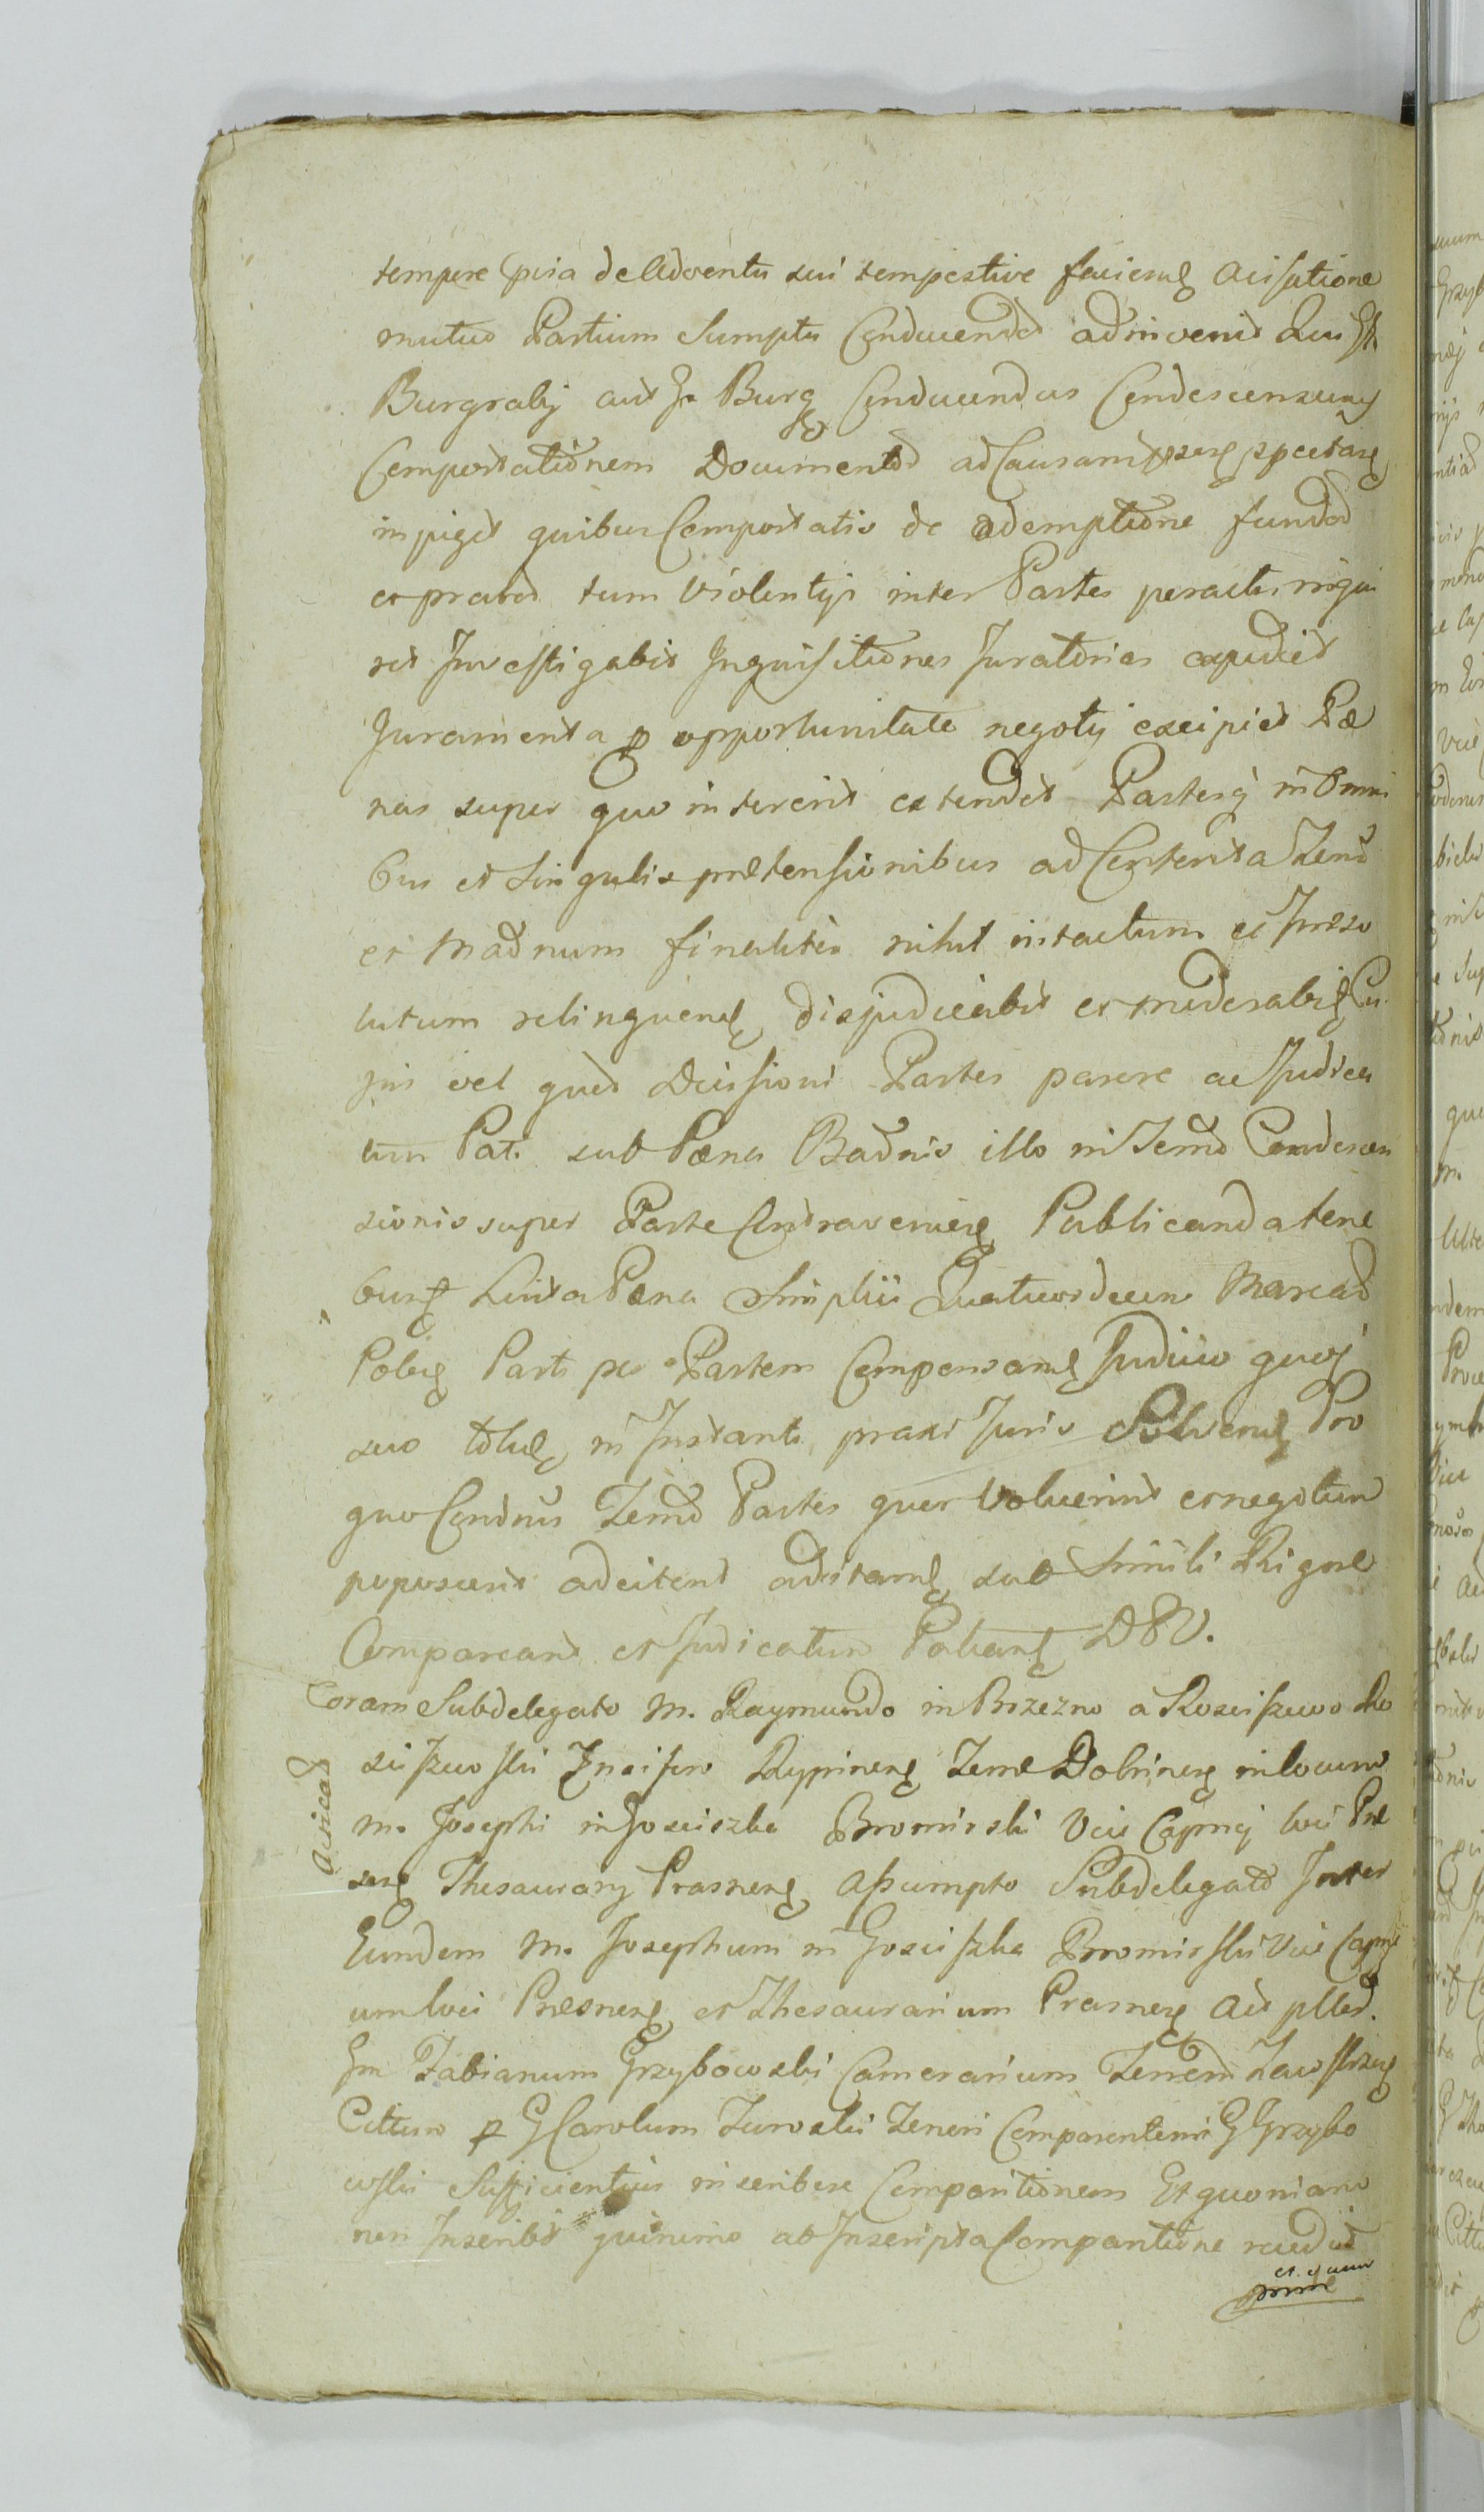 tempore pria de Adventu sui tempestive faciend avisatione
mutuo Partium Sumptu Conducendos adinvenit Qui Jt
Burgrabÿ aut Jn Burg Conducendus Condescensum
Comportationem Documentor ad Causam psens spectan
injiget quibus Comportatis de ademptione fundor
et prator tum violentÿs inter Partes peractis
ret Investigabit Inquisitiones Juratorias expediet
Juramenta p opportunitate negotÿ excipiet Pæ
nas super quo intererit extendet Partesq in Omni
bus et Singulis prætensionibus ad Contenta
et Madnum finaliter nihil intactum et Jrreso
lutum relinquend disjudicabit et moderabit Cu
jus vel quod Decisioni Partes parere ac Judica
tum Pati sub Pæna Badnis illo in Termo Condescen
sionis super Parte Contravenien Publicanda tene
bunt Luita Pæna Simplii Quatuordecim Marcar
Polon Parti per Partem Compensand Judicio quoq
suo solut in Instanti praxi Juris Solvend Pro
quo Condnis Termo Partes quos voluerint et negotium
poposcerit adcitent adcitamq sub Simili Rigore
Compareant et Judicatum Patiant DPV.
Coram Subdelegato M. Raymundo in Brzezno a Kosciszewo Ko
sciszewski Incisero Rypinens Terræ Dobrinens in locum
M. Josephi in Gosciszka Bromirski Vice Capnej loci Præ
sens Thesaurarÿ Prasnens Assumpto Subdelegato Inter
Eundem M. Josephum in Gosciszka Bromirski Vice Capne
um loci Præsnens et Thesaurarium Prasnens Act
Gm Fabianum Grzybowski Camerarium Zawskrzens
Cittum p G Carolum Zurowski Comparentem G Grzybo
wski Sufficientius inscribere Comparitionem Et quoniam
non Inscribit quinimo ab Inscripta Comparitione recedit
et cum
Acticat